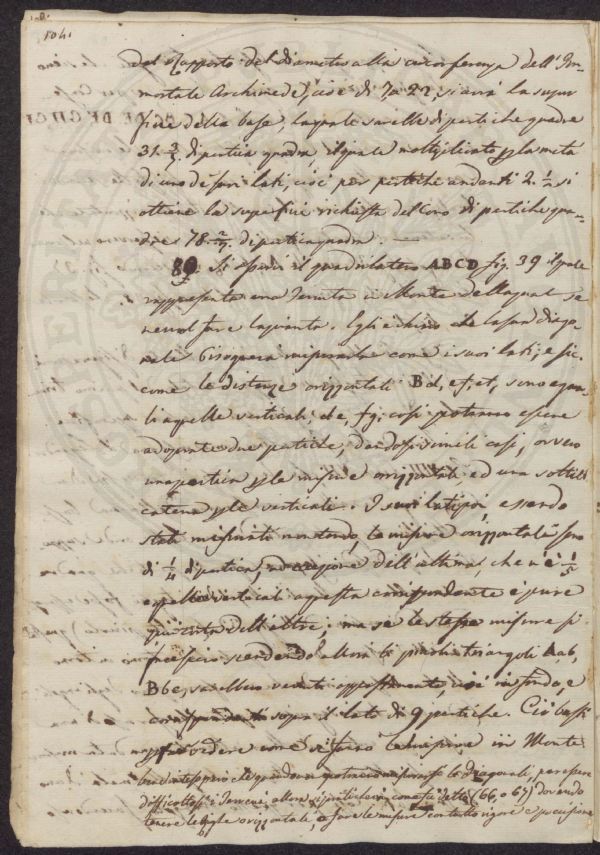 104.
dal Rapporto del diametro alla circonferenza dell'Im-
mortale Archimede, cioè di 7 a 22, si avrà la super
ficie della base, la quale sarebbe di pertiche quadre
31. 3/7 di pertica quadra, il quale moltiplicato per la metà
di uno de suoi lati, cioè per pertiche andanti 2. 1/2 si
ottiene la superficie richiesta del Cono di pertiche qua
dre 78. di pertica quadra.
80. Si esprima il quadrilatero ABCD fig. 39 il quale
rappresenta una Tenuta in Monte della quale se
ne vuol fare la pianta. Egli è chiaro che la sua diago
nale bisognerà misurarla come i suoi lati, e sic
come le distanze orizzontali Bd, ef, et, sono egua
li a quelle verticali, de, fg, così potranno essere
adoprate due pertiche, dandosi simili casi, ovvero
una pertica per le misure orizzontali ed una sottile
catena per le verticali. I suoi lati poi, essendo
stati misurati montando, le misure orizzontali sono
di 1/4 di pertica, ad eccezione dell'ultima, che è 1/5
e quella verticale a questa corrispondente è pure
più corta dell'altre; ma se le stesse misure si
facessero scendendo allora li piccoli triangoli Aab,
Bbc, sarebbero venuti oppostamente, cioè in fondo, e
corrispondenti sopra il lato di 9 pertiche. Ciò basti
per far vedere come si fanno le misure in Monte
ben inteso però che quando non potranno misurarsi le Diagonali, per essere
difficoltosi i Terreni, allora si praticherà come fu detto (66, o 67) dovendo
tenere le righe orizzontali, e fare le misure con tutto rigore e precisione